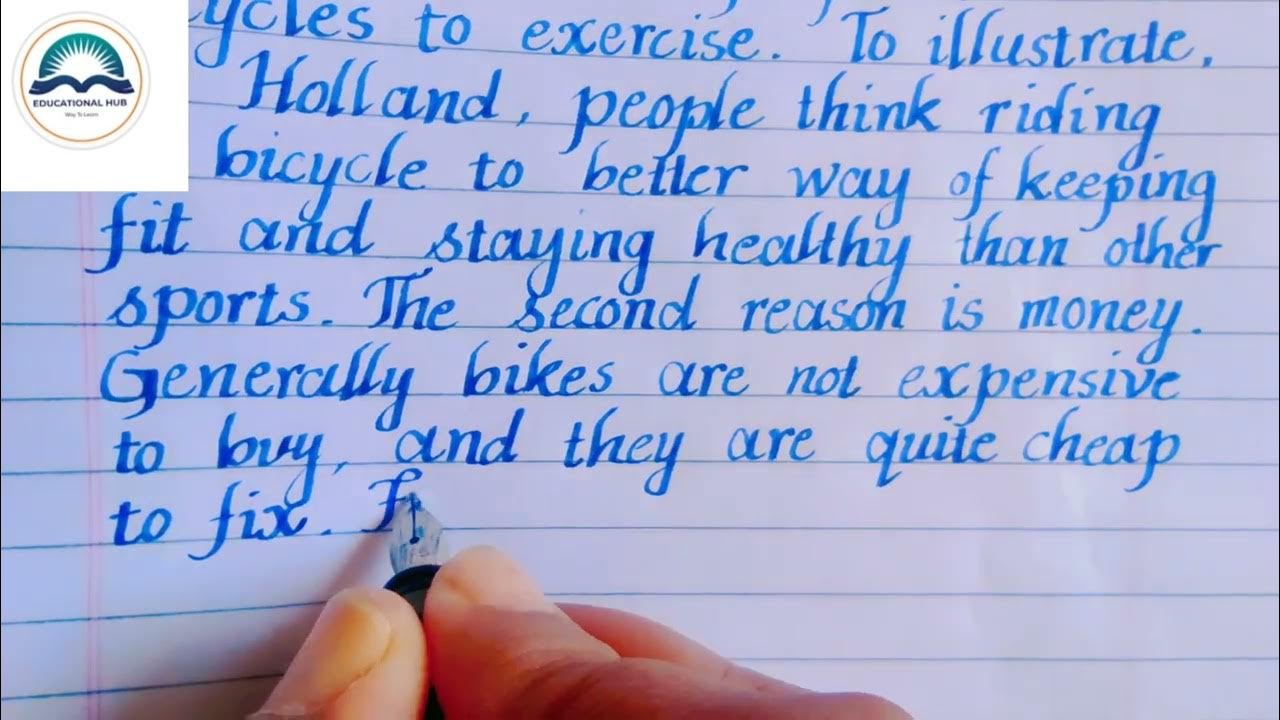 EDUCATIONAL HUB
Way To Learn
ycles to exercise. To illustrate,
Holland, people think riding
bicycle to better way of keeping
fit and staying healthy than other
sports. The second reason is money.
Generally bikes are not expensive
to buy, and they are quite cheap
to fix. F